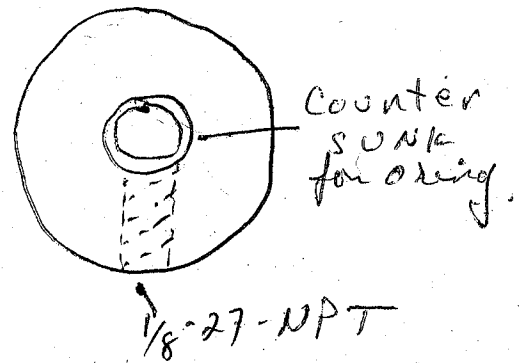 Counter
sunk
for oring.
1/8-27-NPT